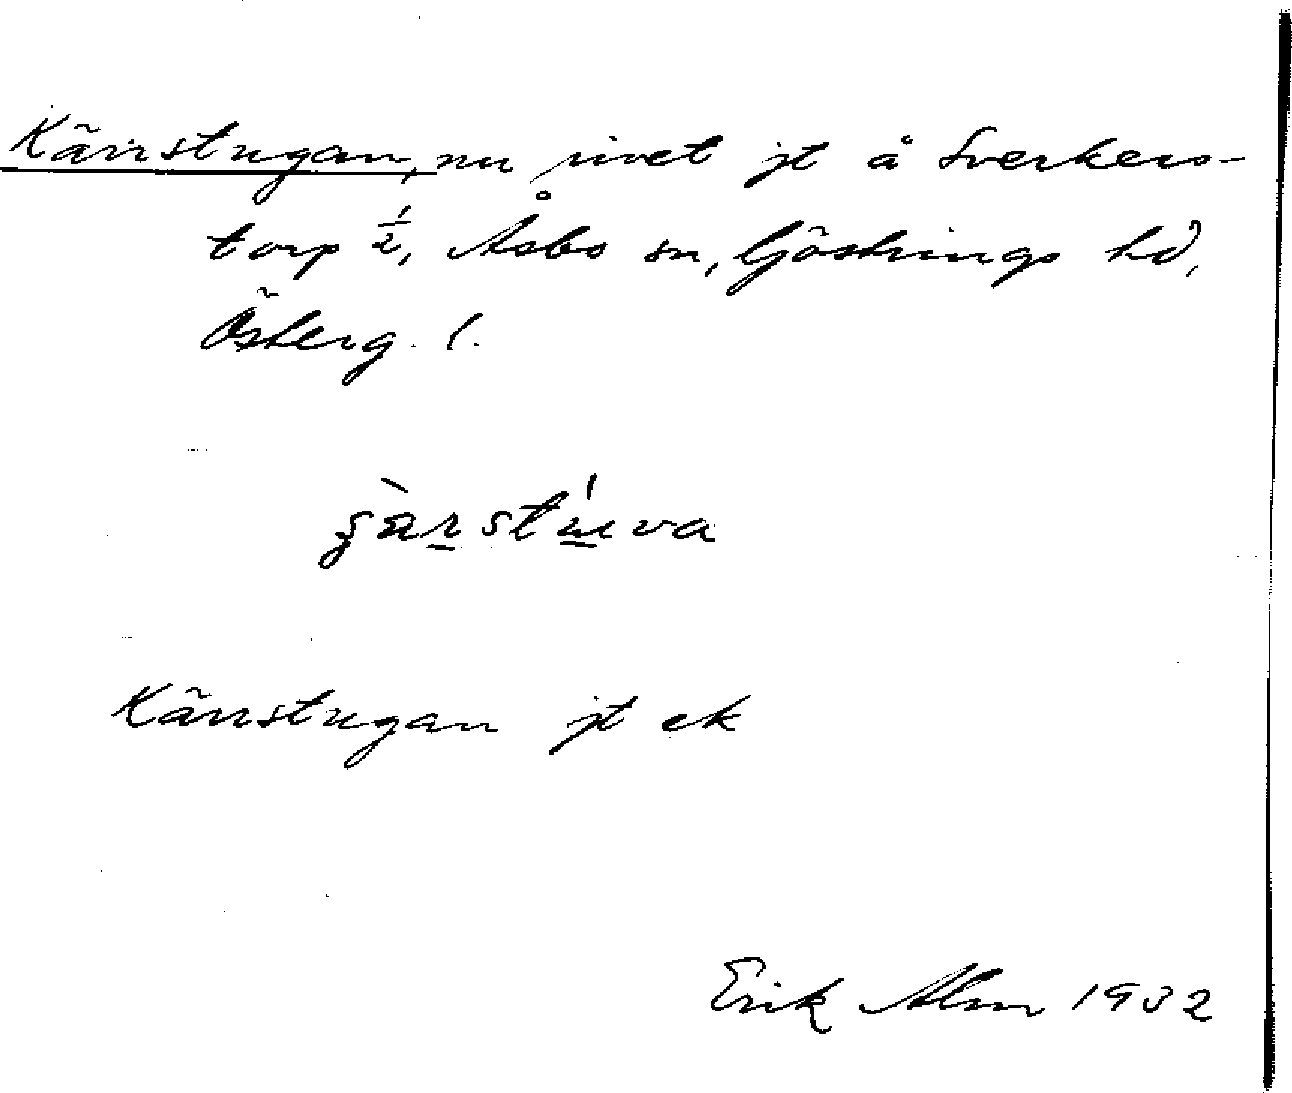 Kärrstugan, nu rivet jt å Sverkers-
torp 1/2, Åsbo sn, Göstrings hd,
Österg. l.
Kärrstugan jt ek
Erik Alm 1932